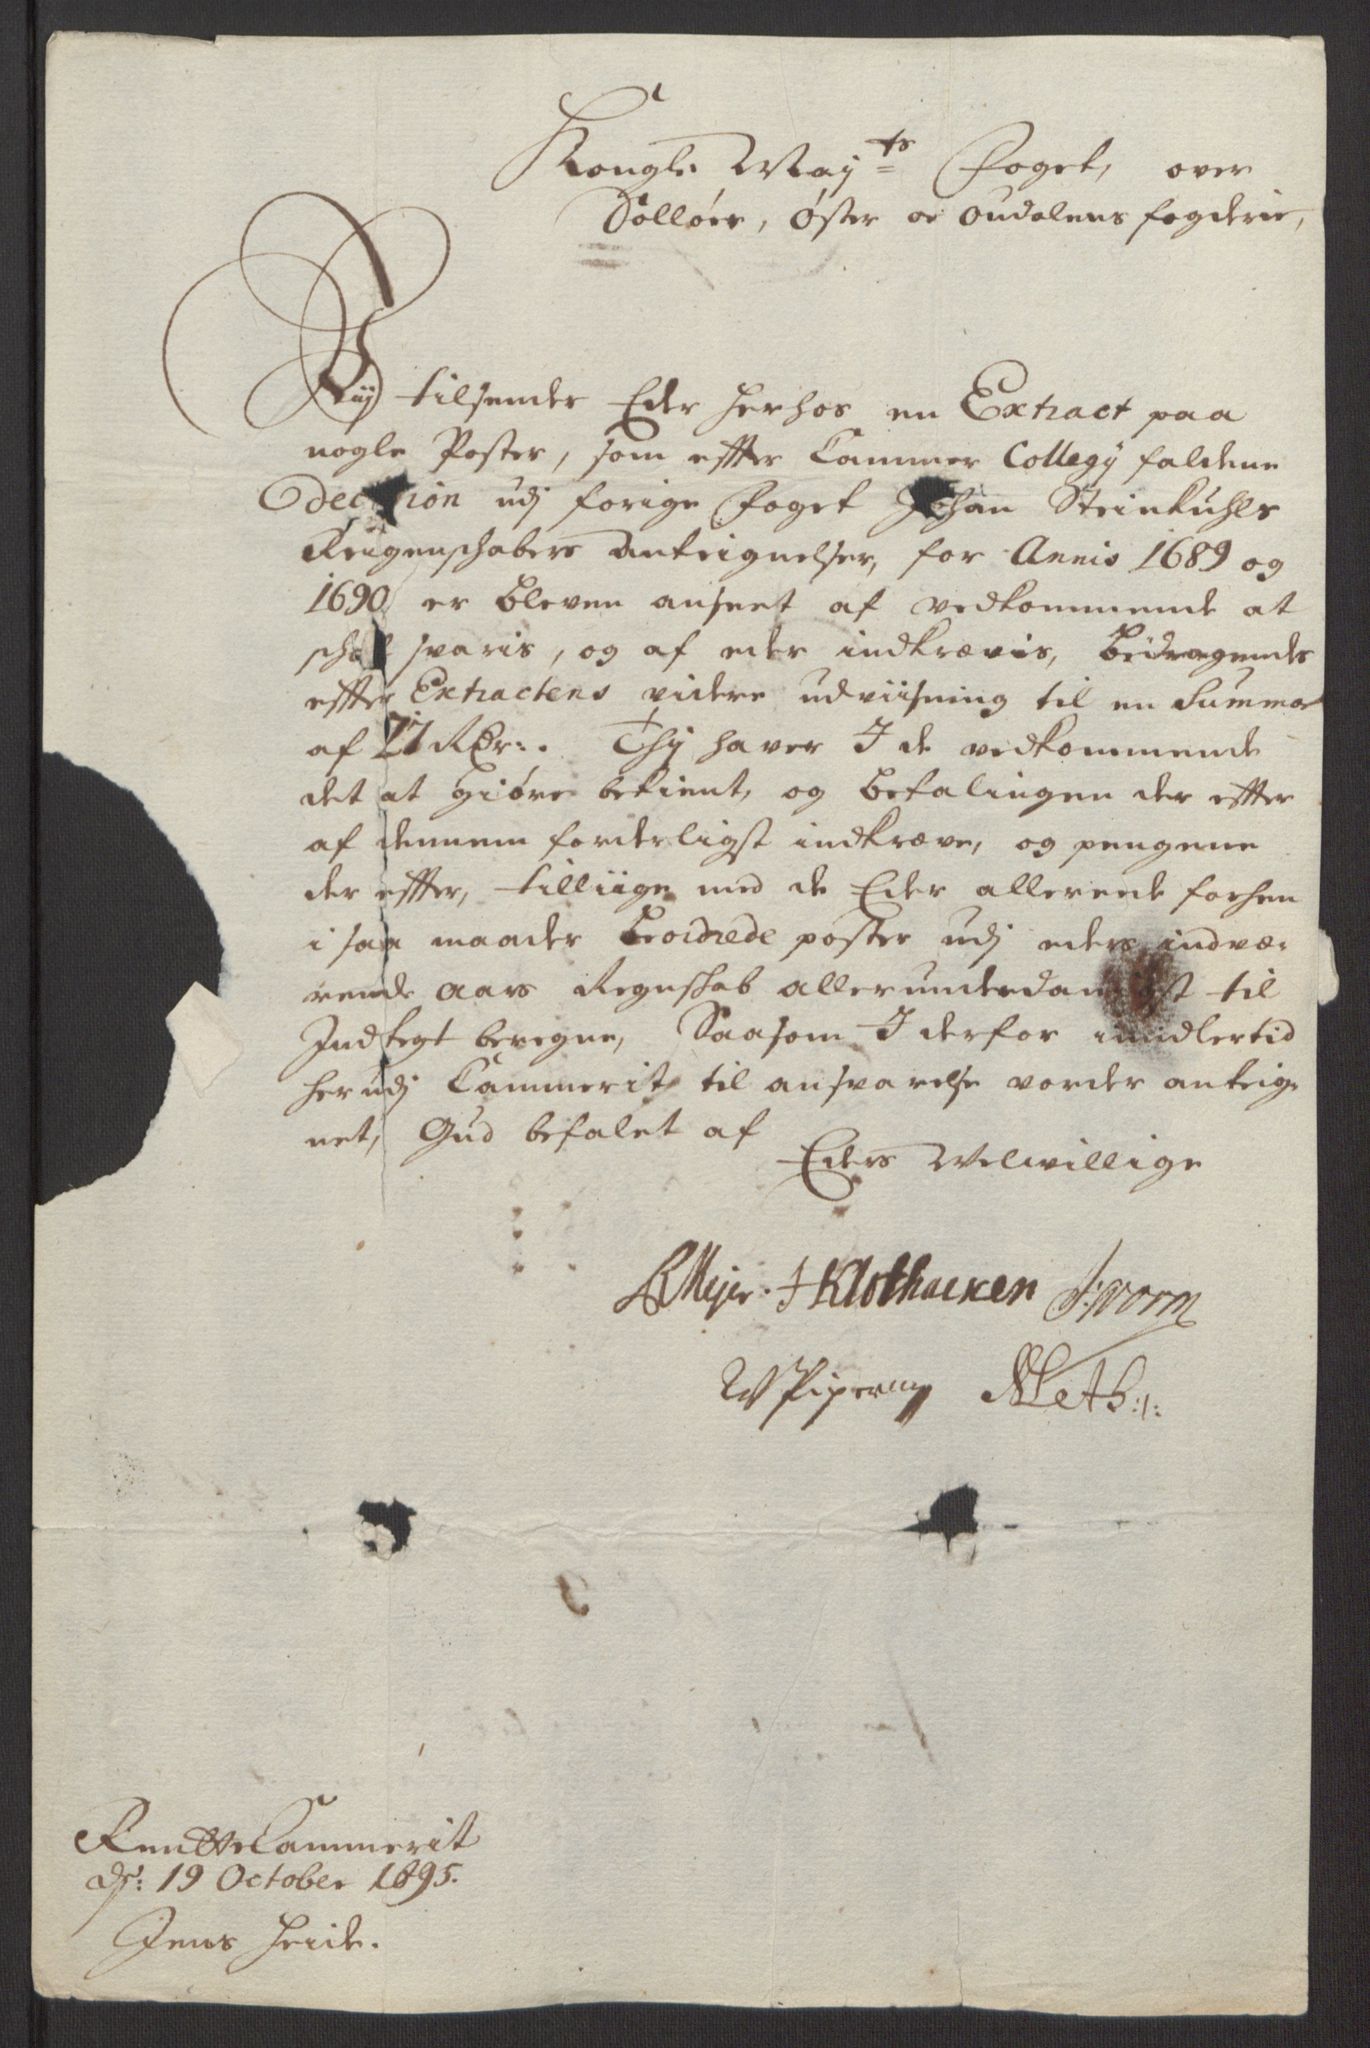 Kongl. Maÿ:ts Foget, over
Sollöer, Öster oc Oudalens fogderie,
Vÿ tilsender Eder herhos en Extract paa
nogle Poster, som effter Cammer Collegÿ faldene
Decision udj forige Foget Johan Steinkuhls
Reigenschabers Anteignelser, for Annis 1689 og
1690 er bleven anseet af vedkommende at
schal svaris, og af eder indkrævis, bedragende
effter Extractens videre udviisning til en Summa
af 27 Rdr:. Thÿ haver I de vedkommende
det at giöre bekient, og betalingen der effter
af dennem forderligst indkræve, og pengene
der effter, tilliige med de Eder allerede forhen
i saa maader beordrede poster udj eders indvæ-
rende aars Regnskab allerunderdanigst til
Indtegt beregne, Saasom I derfor imidlertid
her udj Cammerit til ansvarelse vorder anteig-
net, Gud befalet af
Eders Velvillige
Meÿer. H Klothacken J: Worm
W Piper Meth:
RentteCammerit
d: 19 October 1695.
Jens Heide.